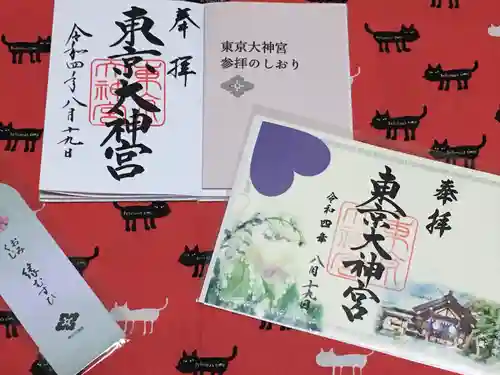 奉拝
東京大神宮
令和四年八月十九日
東京大神宮
参拝のしおり
奉拝
東京大神宮
令和四年
八月十九日
おみくじ
縁むすび